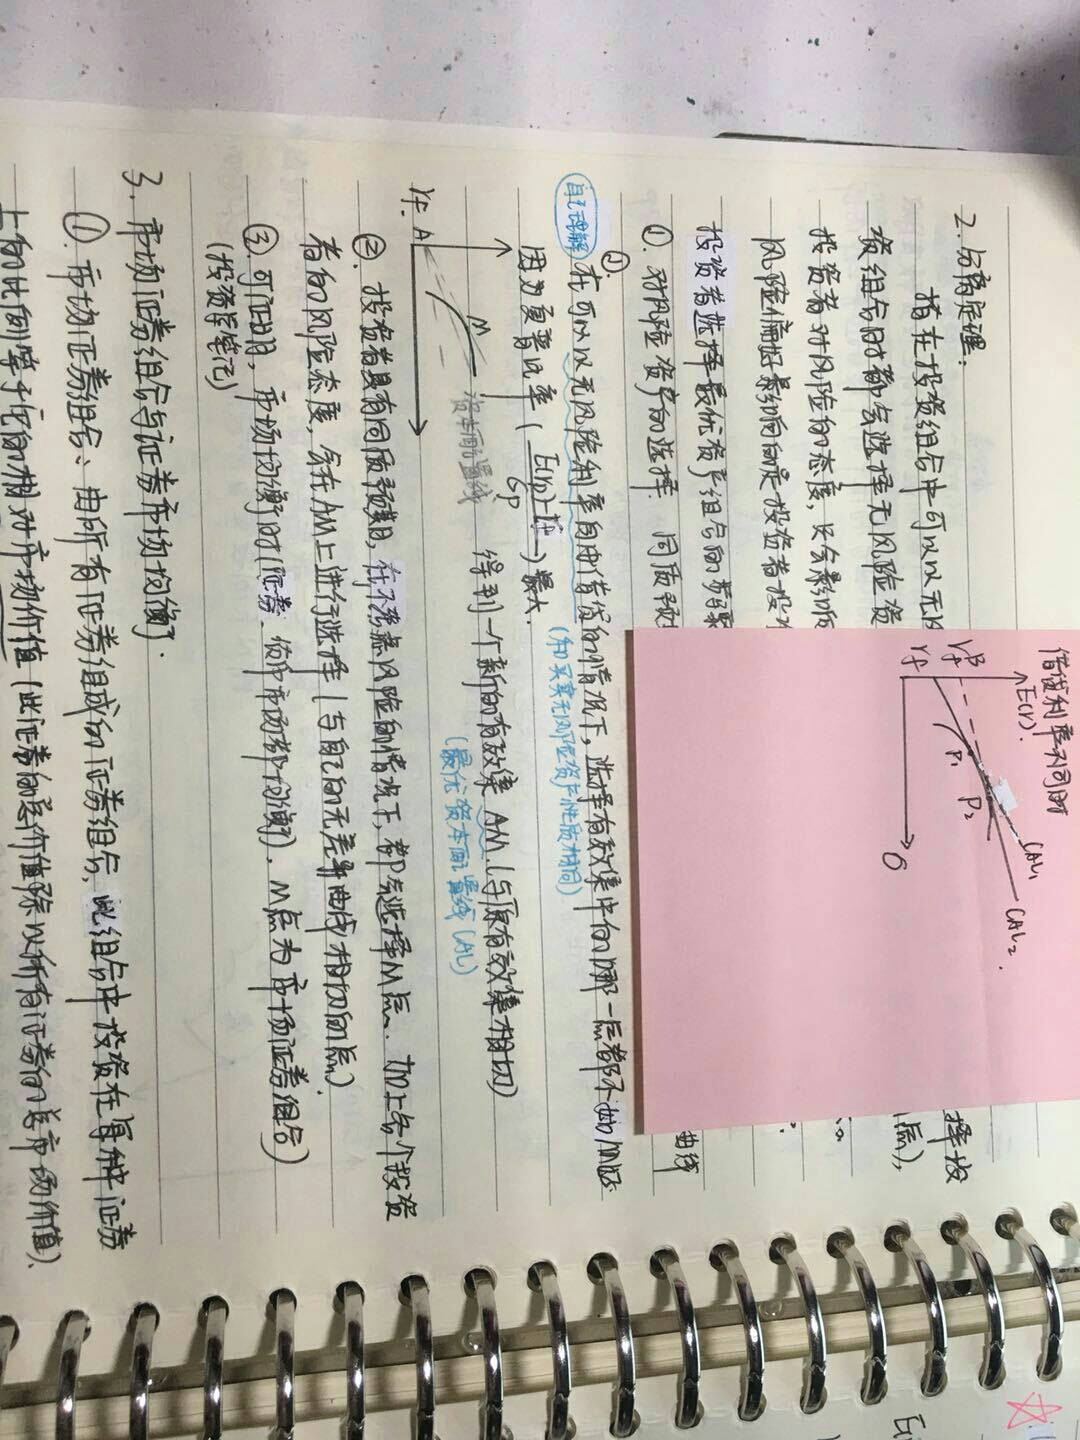 2. 分离定理:
指在投资组合中可以以无风
资组合时都会选择无风险资
投资者对风险的态度,只会影响
风险偏好影响的是投资者投
投资者选择最优资产组合的步骤
①. 对风险资产的选择. 同质预
择投
点),
曲线
借贷利率不同时
E(r).
rfB
rf
P1
P2
CAL1
CAL2.
σ
自己理解 ①. 在可以以无风险利率自由借贷的情况下,选择有效集中的哪一点都不如M点
(和买卖无风险资产性质相同)
因为夏普比率 ( E(rp)-rf / σp ) 最大.
得到一个新的有效集 AM. (与原有效集相切)
(最优资本配置线 CAL)
M
资本配置线
rf. A
②. 投资者具有同质预期, 在不考虑风险的情况下, 都会选择M点. 加上各个投资
者的风险态度, 会在AM上进行选择 (与自己的无差异曲线相切的点)
③. 可证明, 市场均衡时(证券、货币市场都均衡). M点为市场证券组合)
(投资学笔记)
3. 市场证券组合与证券市场均衡.
①. 市场证券组合、由所有证券组成的证券组合, 此组合中投资在每种证券
上的比例等于它的相对市场价值 (此证券的总价值除以所有证券的总市场价值).